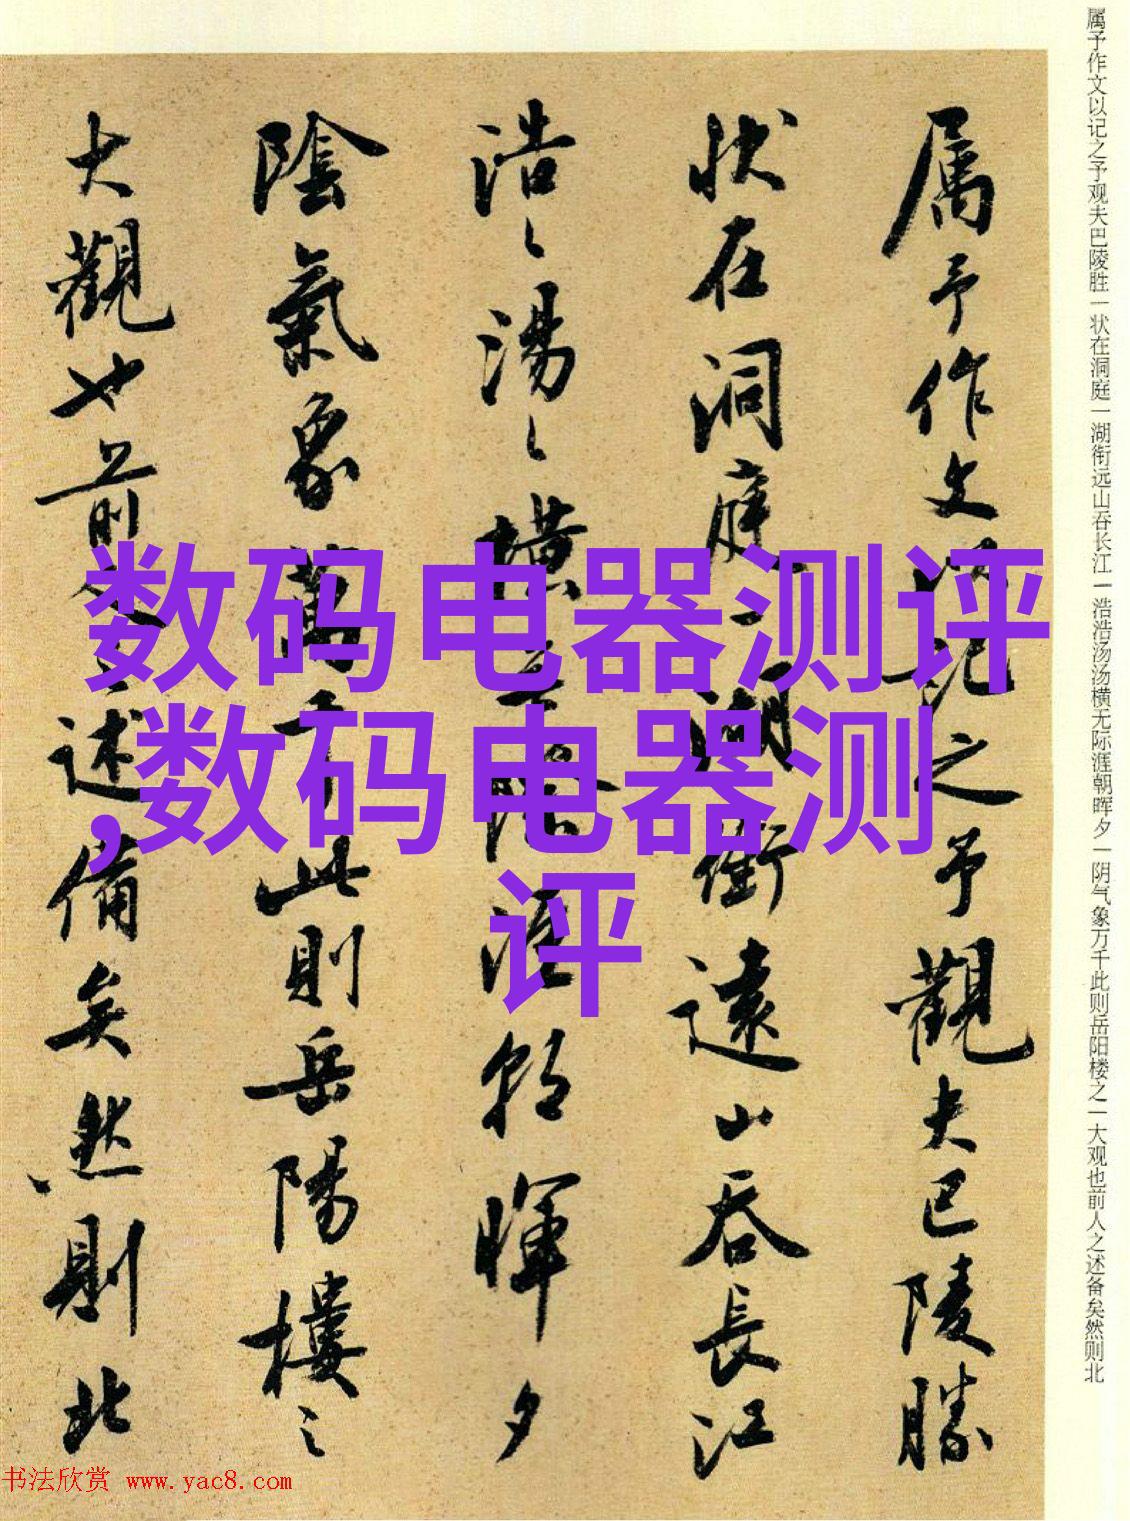 属予作文以记之予观夫巴陵胜一状在洞庭一湖衔远山吞长江一浩浩汤汤横无际涯朝晖夕一阴气象万千此则岳阳楼之一大观也前人之述备矣然则北
属予作文以记之予觀夫巴陵勝
状在洞庭一湖衝遠山吞長江
浩〻湯〻橫無際涯朝暉夕
陰氣象萬千此則岳陽樓之
大觀也前人之述備矣然則北
数码电器测评
,数码电器测
评
书法欣赏 www.yac8.com